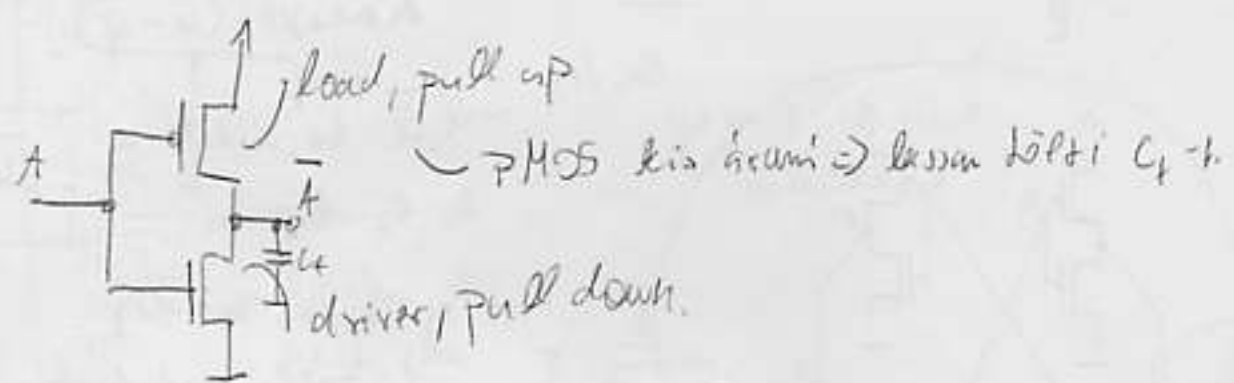 load, pull up
A
PMOS kis áramú ⇒ lassan tölti Ct -t.
A̅
Ct
driver, pull down.